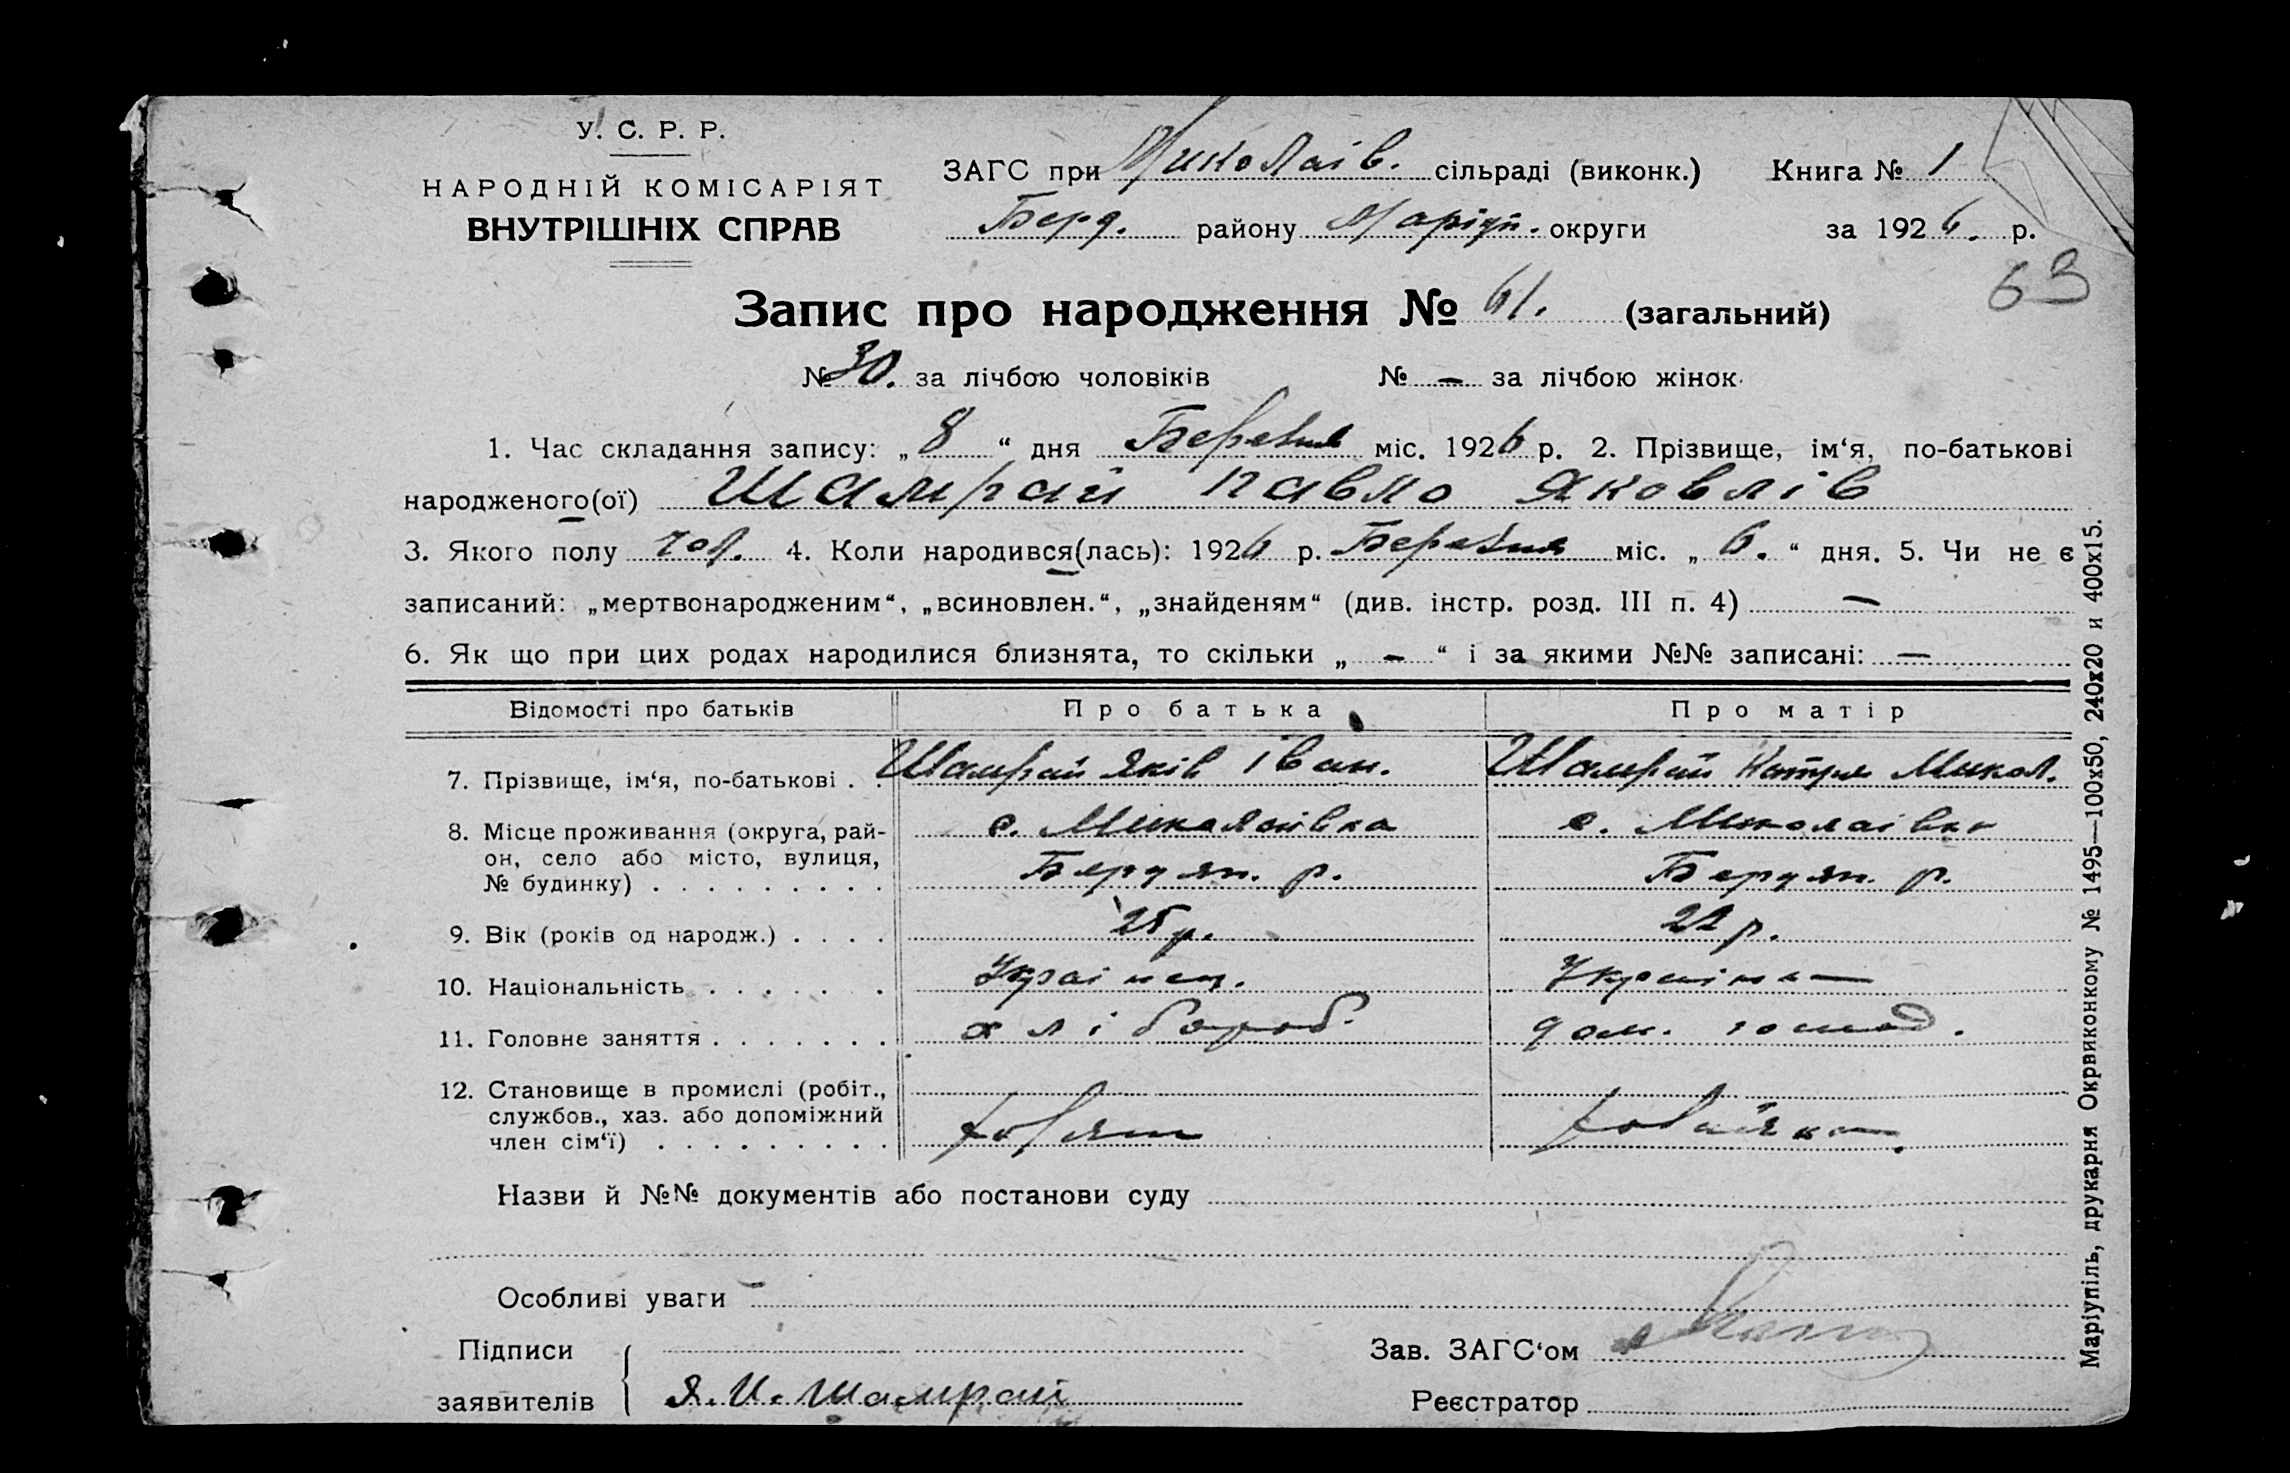 У. С. Р. Р.
НАРОДНІЙ КОМІСАРІЯТ
ВНУТРІШНІХ СПРАВ
ЗАГС при Миколаів. сільраді (виконк.) Книга № 1
Берд. району Маріуп. округи за 1926. р.
63
Запис про народження № 61. (загальний)
№ 30. за лічбою чоловіків № — за лічбою жінок
1. Час складання запису: „8“ дня Березня міс. 1926 р. 2. Прізвище, ім‘я, по-батькові
народженого(ої) Шамрай Павло Яковлів
3. Якого полу чол. 4. Коли народився(лась): 1926 р. Березня міс. „6.“ дня. 5. Чи не є
записаний: „мертвонародженим“, „всиновлен.“, „знайденям“ (див. інстр. розд. III п. 4) —
6. Як що при цих родах народилися близнята, то скільки „—“ і за якими №№ записані: —
Відомості про батьків Про батька Про матір
7. Прізвище, ім‘я, по-батькові . . Шамрай Яків Іван. Шамрай Катря Микол.
8. Місце проживання (округа, рай-
он, село або місто, вулиця,
№ будинку) . . . . . . . . . с. Миколаівка Бердян. р. с. Миколаівка Бердян. р.
9. Вік (років од народж.) . . . . 25 р. 22 р.
10. Національність . . . . . . Украінец. Украінка
11. Головне заняття . . . . . . . хлібороб. дом. господ.
12. Становище в промислі (робіт.,
службов., хаз. або допоміжний
член сім‘ї) . . . . . . . . .
Назви й №№ документів або постанови суду
Особливі уваги
Підписи
заявителів Я. И. Шамрай
Зав. ЗАГС‘ом
Реєстратор
Маріупіль, друкарня Окрвиконкому № 1495—100х50, 240х20 и 400х15.